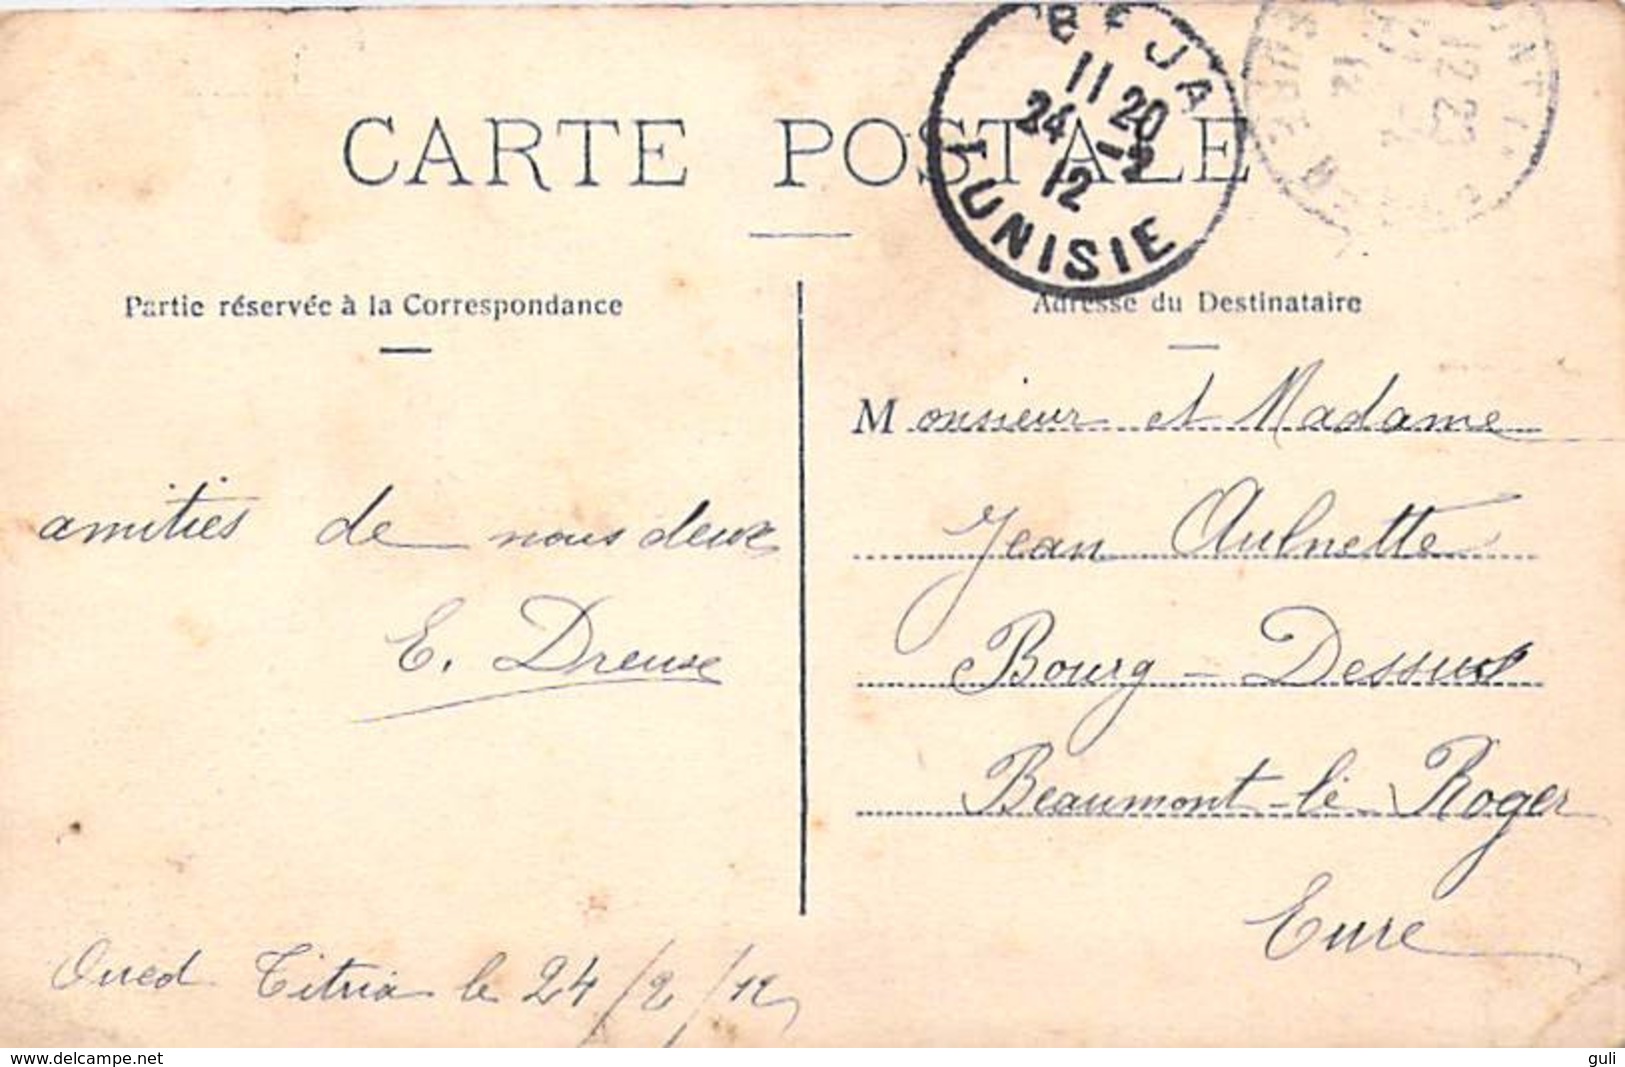 CARTE POSTALE
BEJA
11 20
24 -2
12
TUNISIE
Partie réservée à la Correspondance
Adresse du Destinataire
amitiés de nous deux
E. Dreux
Oued Titria le 24/2/12
Monsieur et Madame
Jean Aulnette
Bourg-Dessus
Beaumont-le Roger
Eure
www.delcampe.net
guli